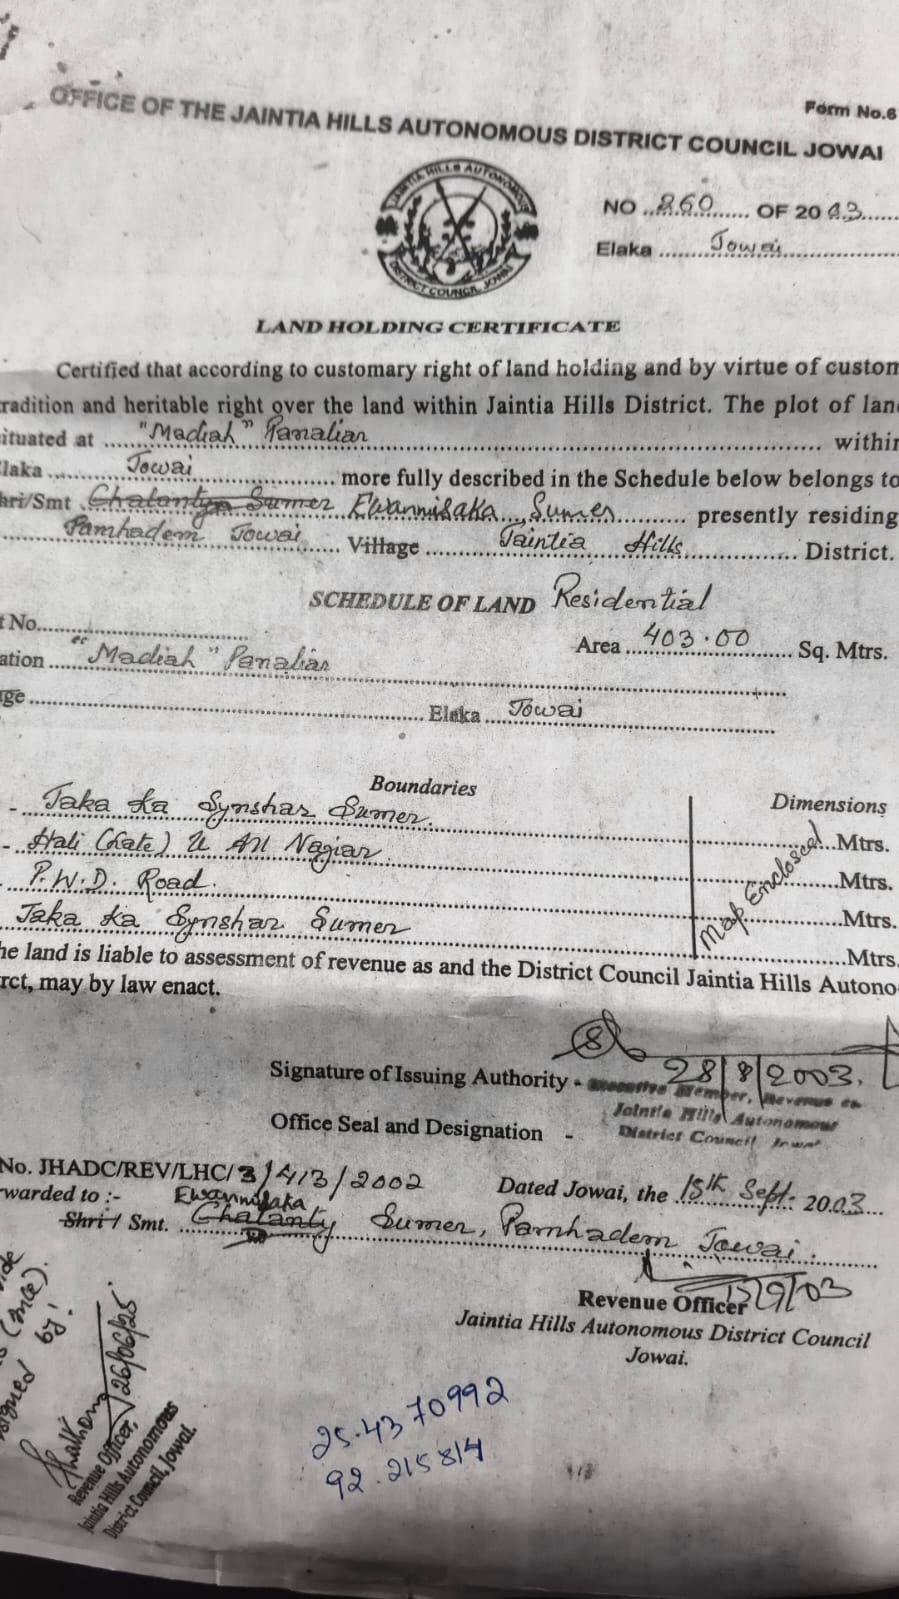 Form No.6
OFFICE OF THE JAINTIA HILLS AUTONOMOUS DISTRICT COUNCIL JOWAI
JAINTIA HILLS AUTONOMOUS
DISTRICT COUNCIL, JOWAI
NO ..260....... OF 2003......
Elaka ........Jowai................
LAND HOLDING CERTIFICATE
Certified that according to customary right of land holding and by virtue of custom
tradition and heritable right over the land within Jaintia Hills District. The plot of land
situated at ....."Madiah" Panaliar.................... within
Elaka .......Jowai............... more fully described in the Schedule below belongs to
Shri/Smt Chalanty Sumer Ewannisaka Sumer.......... presently residing
.......Pamhadem Jowai...... Village ........Jaintia Hills............ District.
SCHEDULE OF LAND Residential
t No.............................
Area ..403.00....... Sq. Mtrs.
ation ...."Madiah" Panaliar..........
ge ............................ Elaka ...Jowai....................
Boundaries
Dimensions
- ..Jaka Ka Synshar Sumer.......Mtrs.
- Hali (Late) U All Nagiar.......Mtrs.
P.W.D. Road.......Mtrs.
Jaka Ka Synshar Sumer.......Mtrs.
Map Enclosed
he land is liable to assessment of revenue as and the District Council Jaintia Hills Autono-
rct, may by law enact.
Signature of Issuing Authority - 28/8/2003.
Executive Member, Revenue etc
Jaintia Hills Autonomous
District Council Jowai
Office Seal and Designation -
No. JHADC/REV/LHC/3/413/2002 Dated Jowai, the 15th Sept. 2003....
rwarded to :- Ewannisaka
Shri / Smt. ..Chalanty Sumer, Pamhadem Jowai.
15/9/03
Revenue Officer
Jaintia Hills Autonomous District Council
Jowai.
by!
26/06/25
Revenue Officer,
Jaintia Hills Autonomous
District Council, Jowai.
25.4370992
92.215814